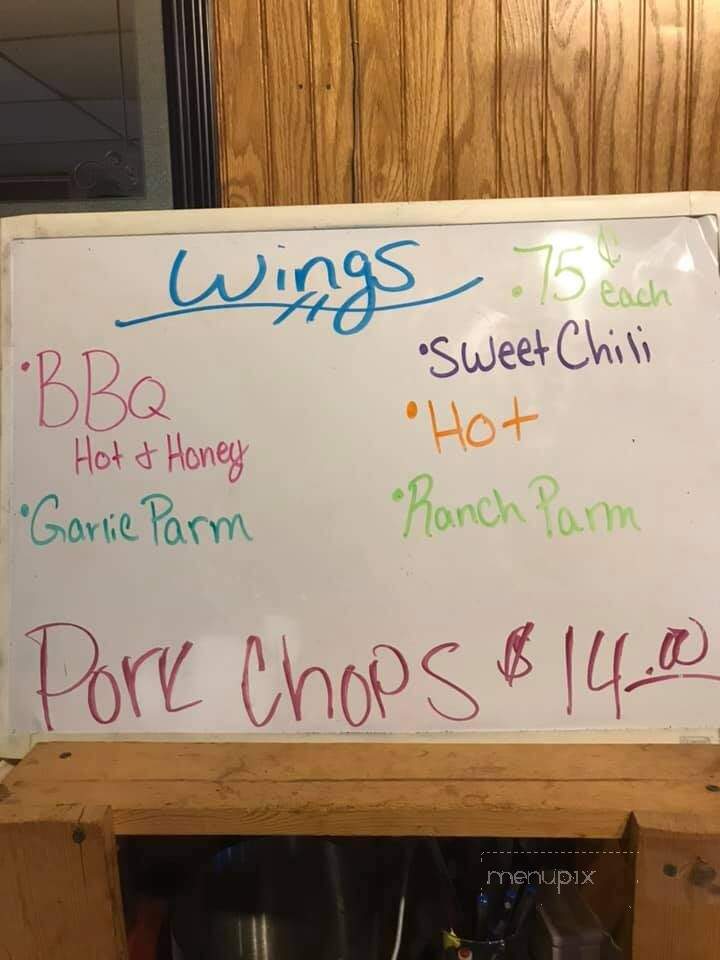 Wings .75¢ each
•BBQ
Hot & Honey
•Garlic Parm
•Sweet Chili
•Hot
•Ranch Parm
Pork Chops $14.00
menupix